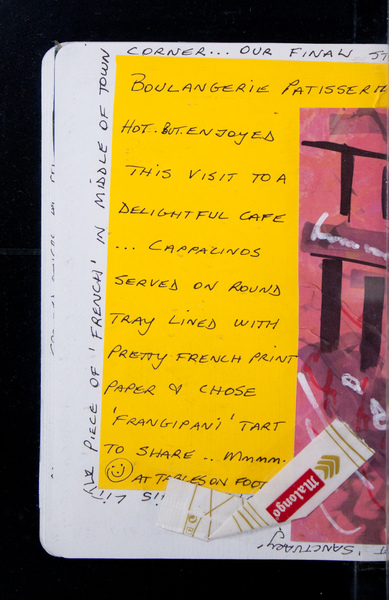 CORNER... OUR FINAL
BOULANGERIE PATISSERIE
HOT. BUT ENJOYED
THIS VISIT TO A
DELIGHTFUL CAFE
... CAPPAZINOS
SERVED ON ROUND
TRAY LINED WITH
PRETTY FRENCH PRINT
PAPER & CHOSE
'FRANGIPANI' TART
TO SHARE .. MMMM.
AT TABLES ON FOOT
PIECE OF 'FRENCH' IN MIDDLE OF TOWN
Malongo
'SANCTUARY'